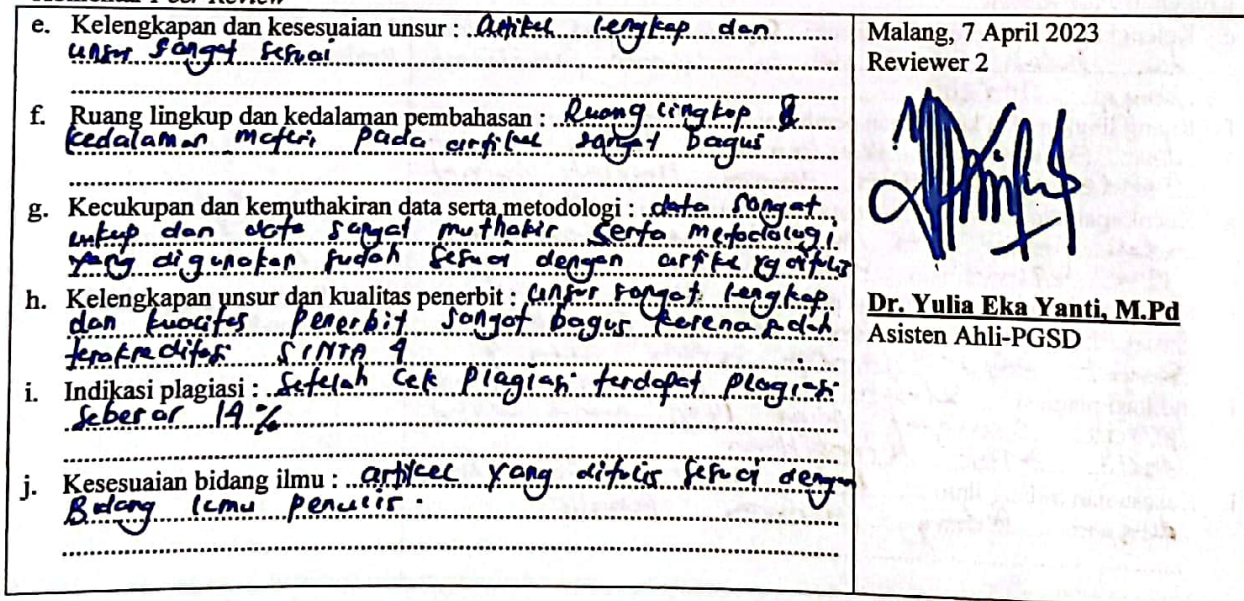 e. Kelengkapan dan kesesuaian unsur : Artikel lengkap dan
unsur sangat sesuai
f. Ruang lingkup dan kedalaman pembahasan : Ruang lingkup &
kedalaman materi pada artikel sangat bagus
g. Kecukupan dan kemuthakiran data serta metodologi : data sangat
cukup dan data sangat muthakir serta metodologi
yang digunakan sudah sesuai dengan artikel yg ditulis
h. Kelengkapan unsur dan kualitas penerbit : Unsur sangat lengkap
dan kualitas penerbit sangat bagus karena sudah
terakreditasi SINTA 4
i. Indikasi plagiasi : Setelah cek plagiasi terdapat plagiasi
sebesar 14 %
j. Kesesuaian bidang ilmu : artikel yang ditulis sesuai dengan
Bidang ilmu penulis.
Malang, 7 April 2023
Reviewer 2
Dr. Yulia Eka Yanti, M.Pd
Asisten Ahli-PGSD